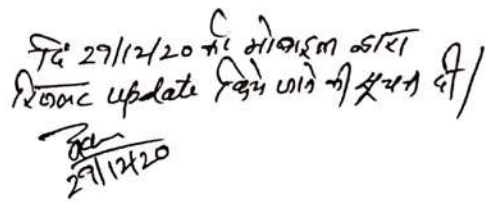 दि 29/12/20 को मोबाइल द्वारा
रिजल्ट update किये जाने की सूचना दी/
29/12/20